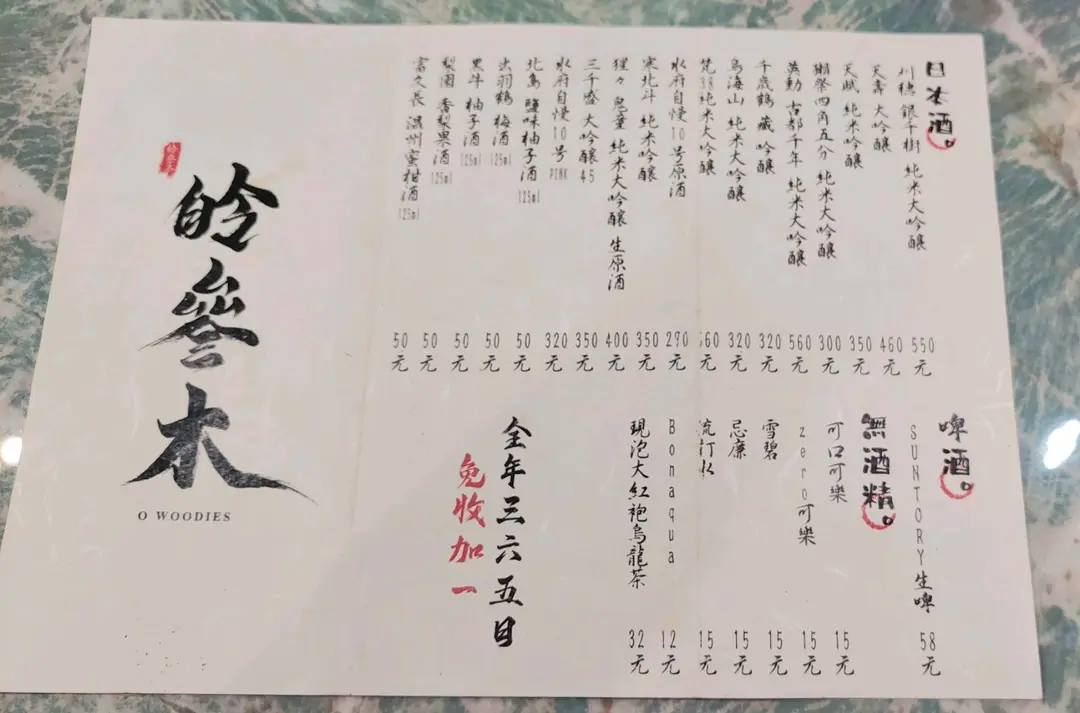 日本酒。
刈穗 銀千樹 純米大吟釀 550元
天壽 大吟釀 460元
天賦 純米吟釀 350元
獺祭四角五分 純米大吟釀 300元
英勳 古都千年 純米大吟釀 560元
千歲鶴 藏 吟釀 320元
鳥海山 純米大吟釀 320元
梵38純米大吟釀 元
水府自慢10号原酒 290元
寒北斗 純米吟釀 350元
狸々 鬼童 純米大吟釀 生原酒 400元
三千盛 大吟釀45 350元
水府自慢10号PINK 320元
北島 鹽味柚子酒(125ml) 50元
出羽鶴 梅酒(125ml) 50元
黑牛 柚子酒(125ml) 50元
梨園 香梨果酒(125ml) 50元
富久長 溫州蜜柑酒(125ml) 50元
啤酒。
SUNTORY生啤 58元
無酒精。
可口可樂 15元
zero可樂 15元
雪碧 15元
忌廉 15元
流汀水 15元
Bonaqua 12元
現泡大紅袍烏龍茶 32元
全年三六五日
免收加一
皊叄木
O WOODIES